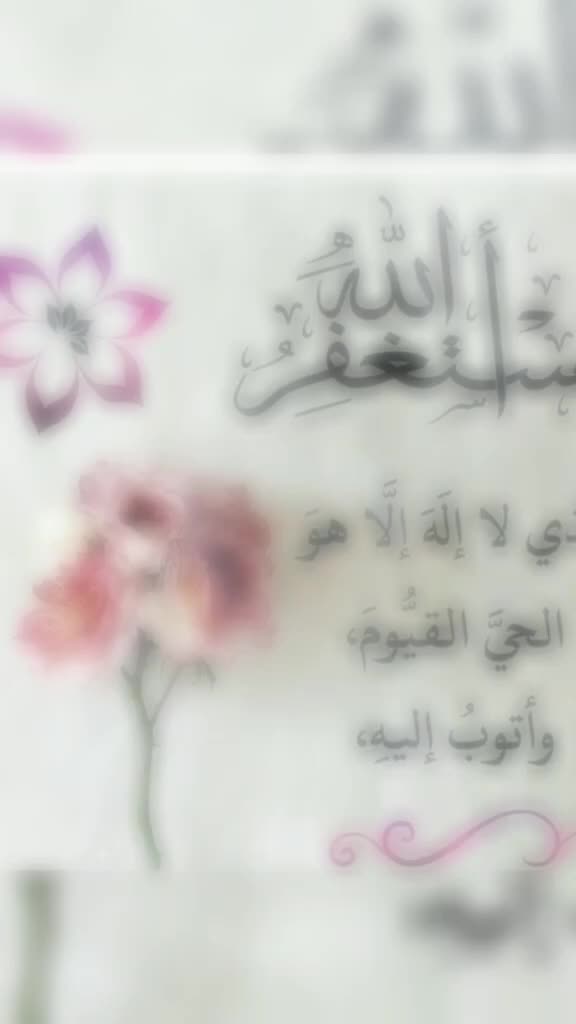 أستغفرُ اللهَ
لا إِلَهَ إلَّا هوَ
الحيَّ القيُّومَ،
وأتوبُ إليهِ،